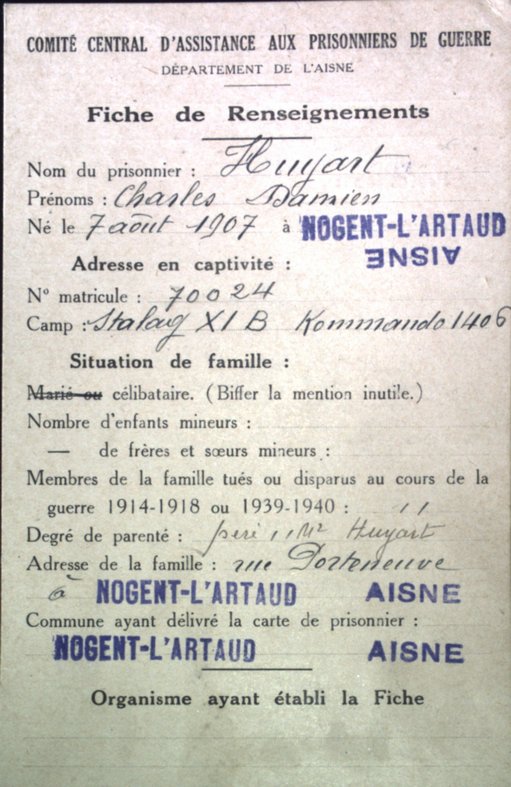 COMITÉ CENTRAL D'ASSISTANCE AUX PRISONNIERS DE GUERRE
DÉPARTEMENT DE L'AISNE
Fiche de Renseignements
Nom du prisonnier : Huyart
Prénoms : Charles Damien
Né le 7 août 1907 à NOGENT-L'ARTAUD
AISNE
Adresse en captivité :
N° matricule : 70024
Camp : Stalag XI B Kommando 1406
Situation de famille :
Marié ou célibataire. (Biffer la mention inutile.)
Nombre d'enfants mineurs :
— de frères et sœurs mineurs :
Membres de la famille tués ou disparus au cours de la
guerre 1914-1918 ou 1939-1940 : "
Degré de parenté : père Mr Huyart
Adresse de la famille : rue Porteneuve
à NOGENT-L'ARTAUD AISNE
Commune ayant délivré la carte de prisonnier :
NOGENT-L'ARTAUD AISNE
Organisme ayant établi la Fiche